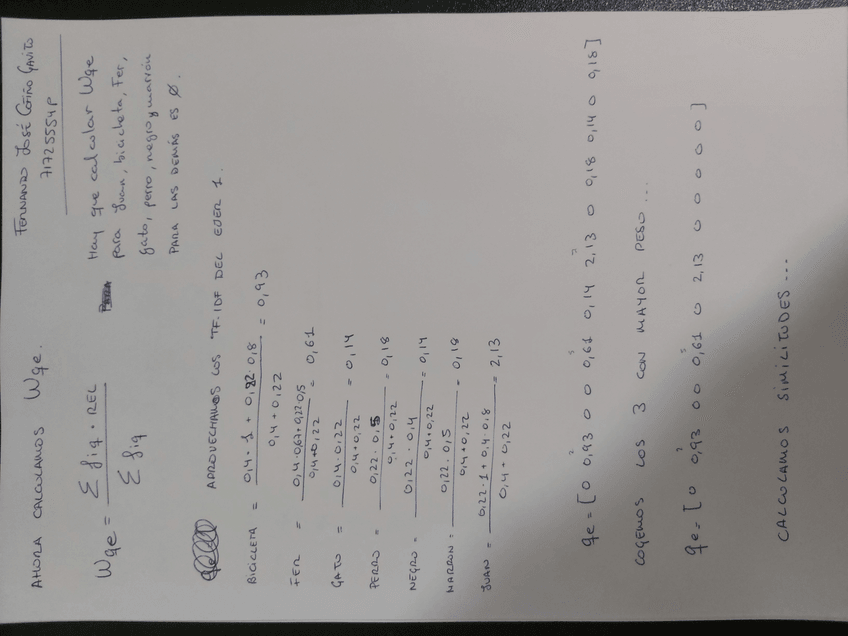 FERNANDO JOSÉ COTIÑO GAVITO
71725554P
AHORA CALCULAMOS Wqe.
Wqe = Σ fiq · REL / Σ fiq
Hay que calcular Wqe
para Juan, bicicleta, Fer,
gato, perro, negro y marrón
PARA LAS DEMÁS ES Ø.
APROVECHAMOS LOS TF.IDF DEL EJER 1.
BICICLETA = 0,4 · 1 + 0,22 · 0,8 / 0,4 + 0,22 = 0,93
FER = 0,4 · 0,67 + 0,22 · 0,5 / 0,4 + 0,22 = 0,61
GATO = 0,4 · 0,22 / 0,4 + 0,22 = 0,14
PERRO = 0,22 · 0,5 / 0,4 + 0,22 = 0,18
NEGRO = 0,22 · 0,4 / 0,4 + 0,22 = 0,14
MARRON = 0,22 · 0,5 / 0,4 + 0,22 = 0,18
JUAN = 0,22 · 1 + 0,4 · 0,8 / 0,4 + 0,22 = 2,13
qe = [ 0 0,93 0 0 0,61 0,14 2,13 0 0,18 0,14 0 0,18 ]
COGEMOS LOS 3 CON MAYOR PESO ...
qe = [ 0 0,93 0 0 0,61 0 2,13 0 0 0 0 0 ]
CALCULAMOS SIMILITUDES ...